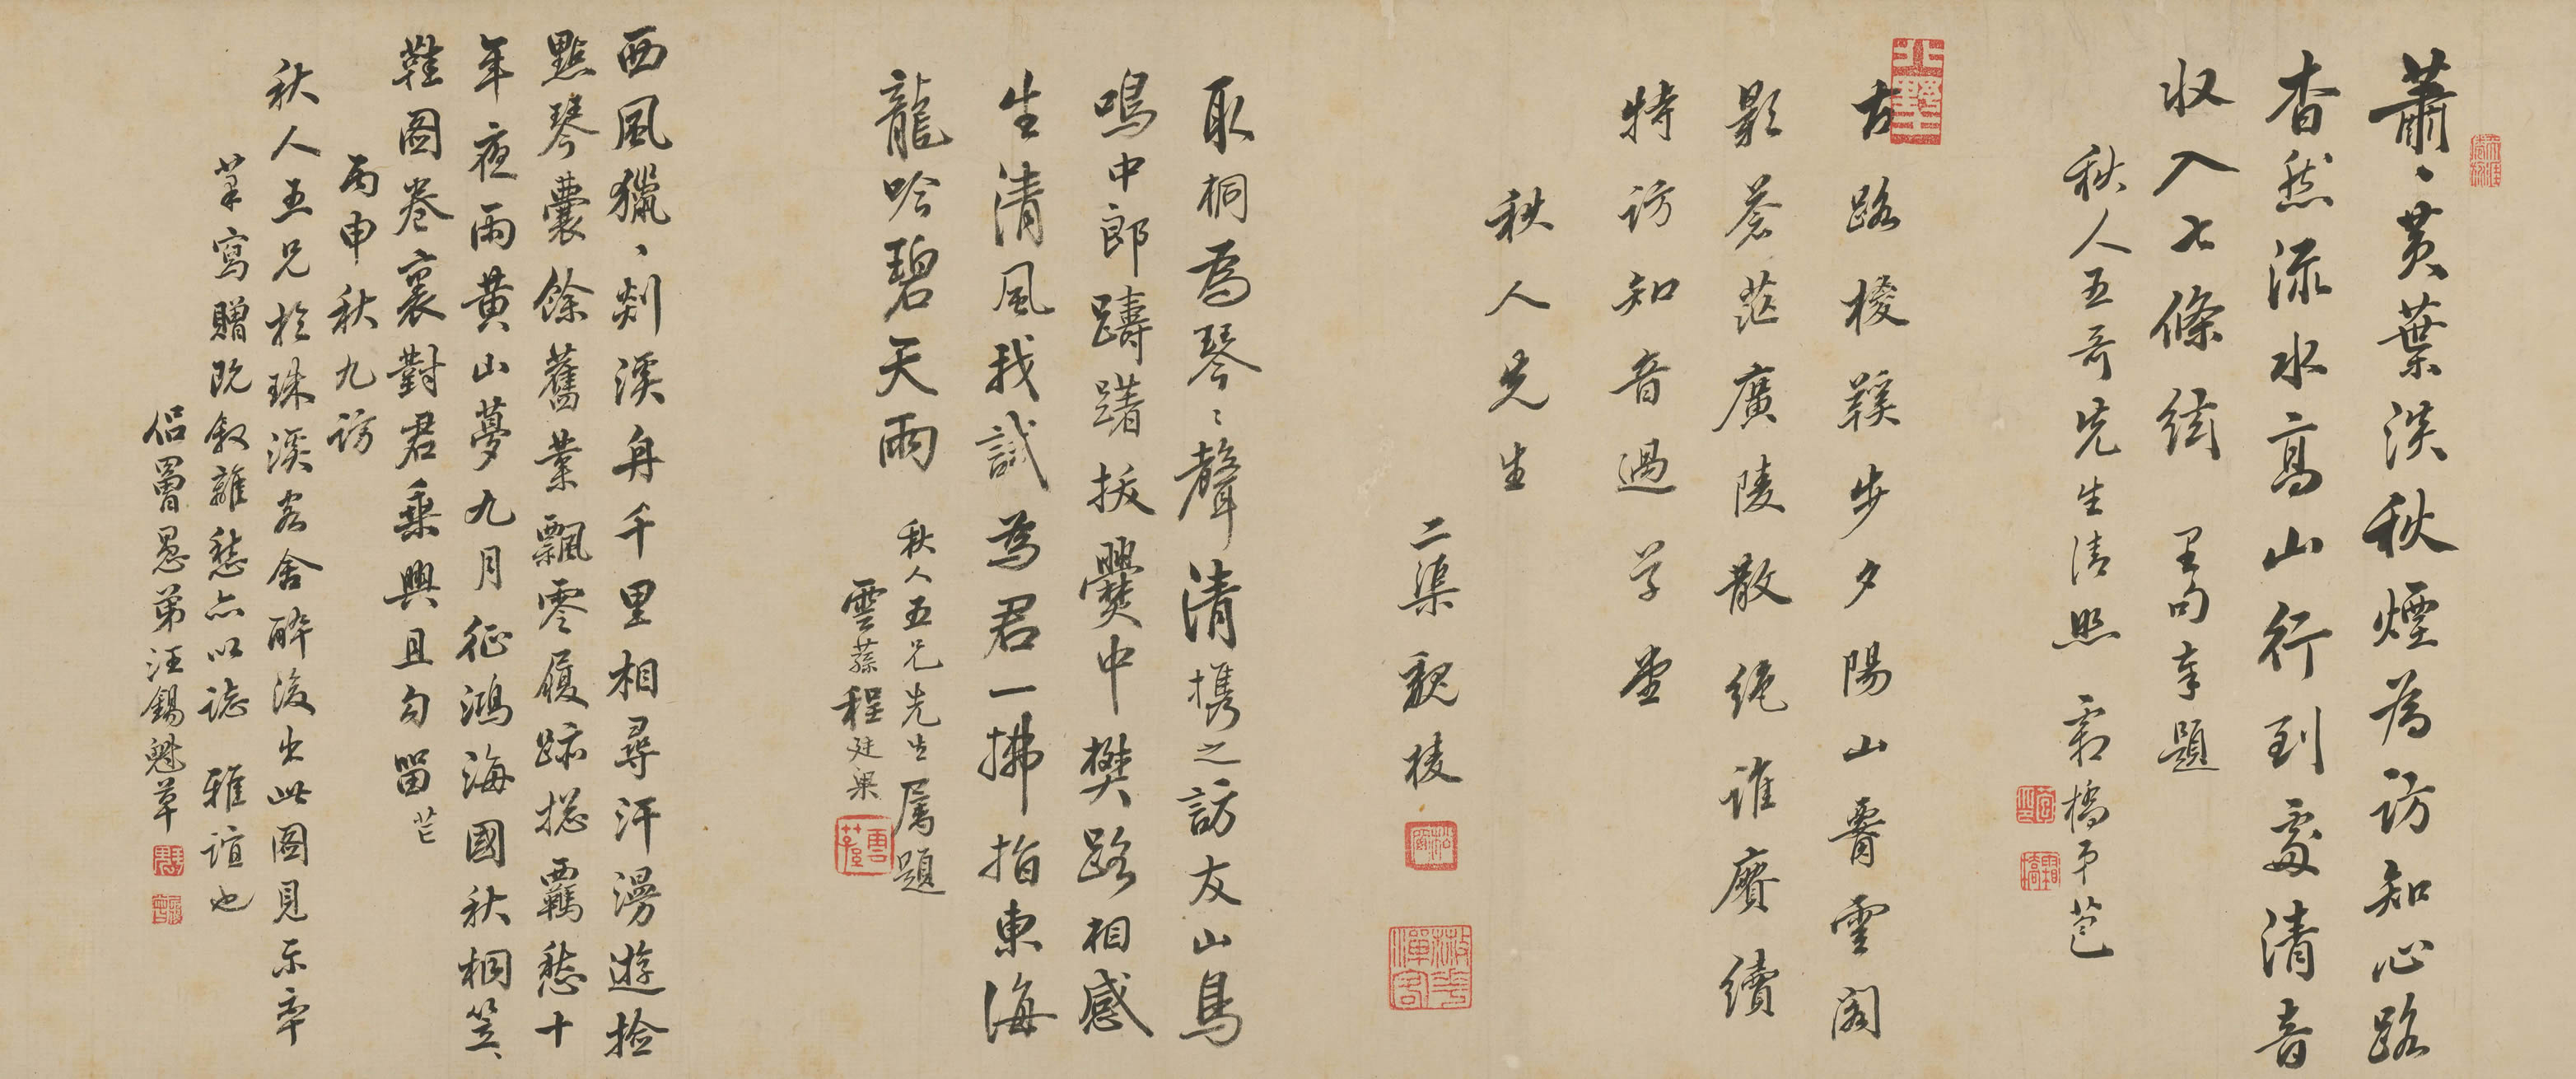 蕭〻黃葉淡秋煙為訪知心路
杳然流水高山行到處清音
収入七條絃 里句奉題
秋人五哥先生清照 霜橋弟苞
古路棱鞵步夕陽山脣雲閣
影蒼茫廣陵散絕誰賡續
特訪知音過草堂
秋人先生
二渠 稜
取桐為琴〻聲清攜之訪友山鳥
鳴中郎躊躇扳爨中樊路相感
生清風我試為君一拂指東海
龍吟碧天雨
秋人五兄先生屬題
雲蓀程廷
西風獵〻剡溪舟千里相尋汗漫遊撿
點琴囊餘舊業飄零履跡揔羈愁十
年夜雨黃山夢九月征鴻海國秋桐笠
鞵圖卷裏對君乘興且勾留 芒
丙申秋九訪
秋人五兄於珠溪客舍醉後出此圖見示率
筆寫贈既敘離愁亦以誌 雅誼也
侶曽愚弟汪錫魁草